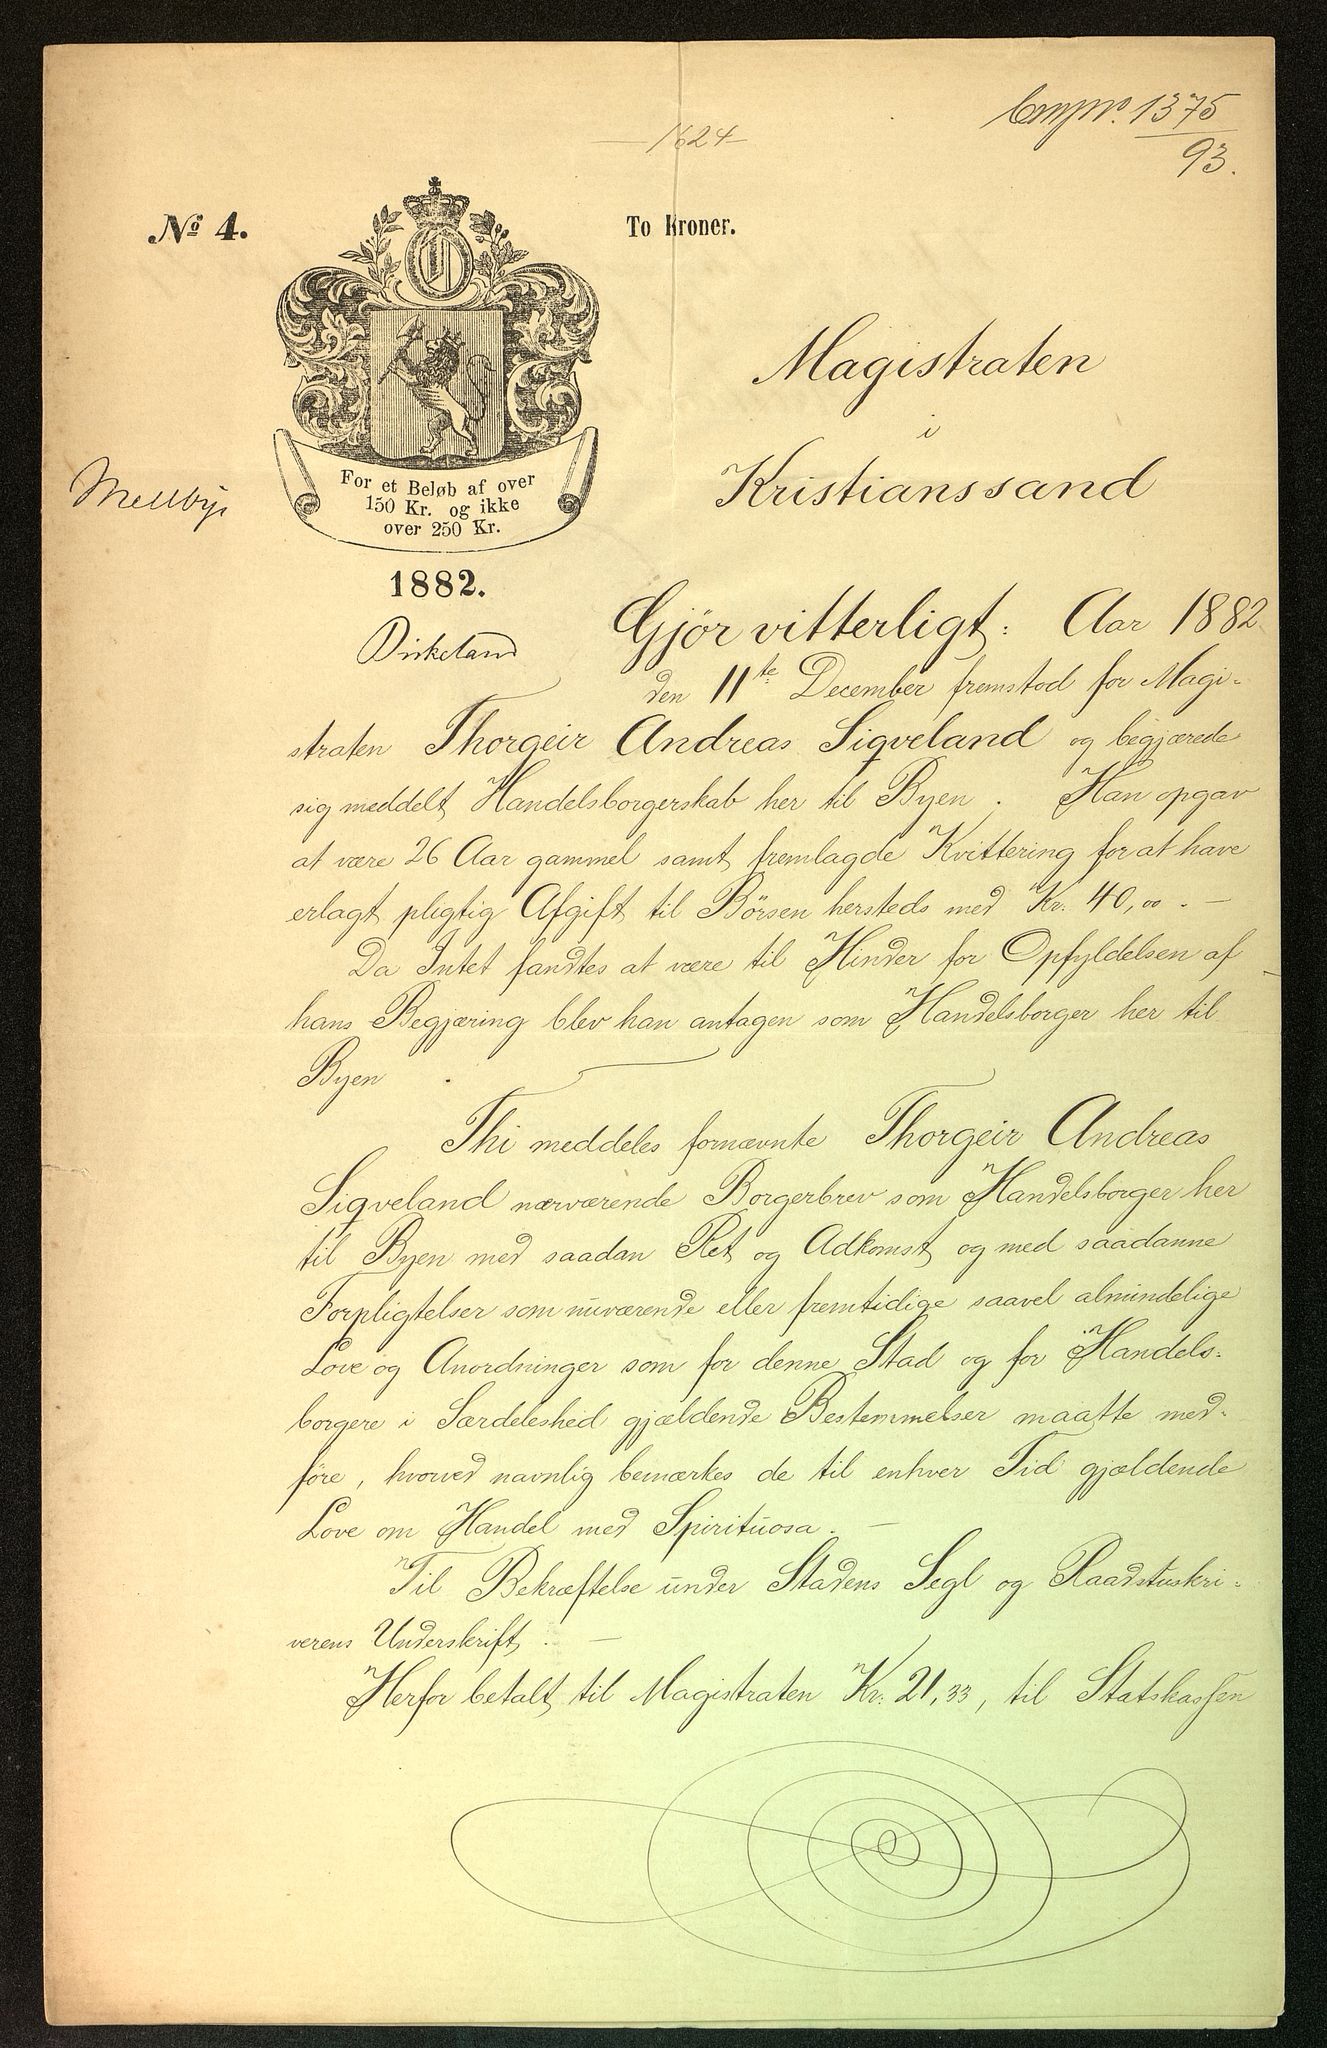 1375
93.
1624
No 4.
To Kroner.
For et Beløb af over
150 Kr. og ikke
over 250 Kr.
1882.
Magistraten
i
Kristianssand
Gjör vitterligt: Aar 1882
den 11te December fremstod for Magi-
straten Thorgeir Andreas Siqveland og begjærede
sig meddelt Handelsborgerskab her til Byen. Han opgav
at være 26 Aar gammel samt fremlagde Kvittering for at have
erlagt pligtig Afgift til Börsen hersteds med Kr. 40,00. —
Da Intet fandtes at være til Hinder for Opfyldelsen af
hans Begjæring blev han antagen som Handelsborger her til
Byen.
Thi meddeles fornævnte Thorgeir Andreas
Siqveland nærværende Borgerbrev som Handelsborger her
til Byen med saadan Ret og Adkomst og med saadanne
Forpligtelser som nuværende eller fremtidige saavel almindelige
Love og Anordninger som for denne Stad og for Handels-
borgere i Særdeleshed gjældende Bestemmelser maatte med-
føre, hvorved navnlig bemærkes de til enhver Tid gjældende
Love om Handel med Spirituosa. —
Til Bekræftelse under Stadens Segl og Raadstuskri-
verens Underskrift. —
Herfor betalt til Magistraten Kr. 21,33, til Statskassen